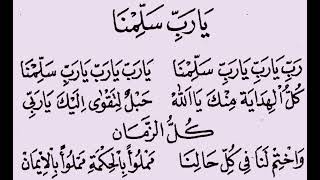 يَارَبِّ سَلِّمْنَا
رَبِّ يَارَبِّ يَارَبِّ سَلِّمْنَا يَارَبِّ يَارَبِّ يَارَبِّ سَلِّمْنَا
كُلُّ الْهِدَايَةِ مِنْكَ يَااَللهُ حَبْلٌ لِتَقْوٰى اِلَيْكَ يَارَبِّى
كُلُّ الزَّمَان
وَاخْتِمْ لَنَا فِى كُلِّ حَالِنَا مَمْلُوْأً بِالْحِكْمَةِ مَمْلُوْأً بِالْاِيْمَان